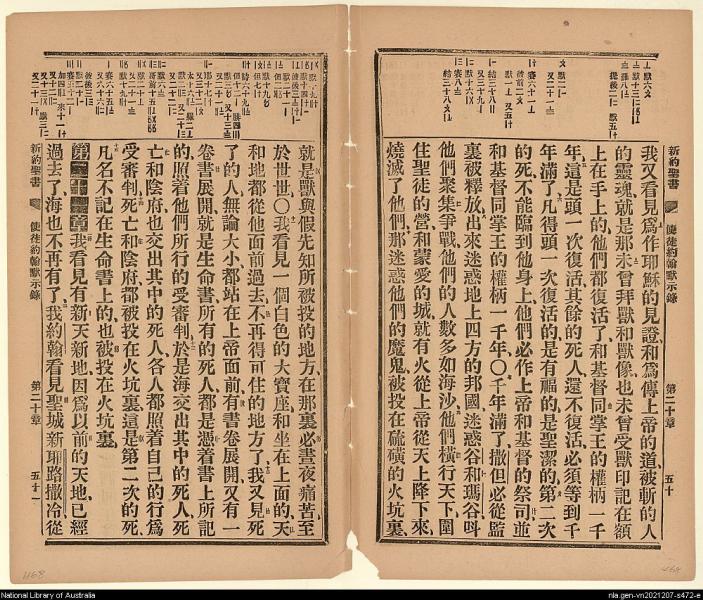 新約聖書
使徒約翰默示錄
第二十章
五十
我又看見爲作耶穌的見證和爲傳上帝的道被斬的人
的靈魂就是那未曾拜獸和獸像也未曾受獸印記在額
上在手上的他們都復活了和基督同掌王的權柄一千
年這是頭一次復活其餘的死人還不復活必須等到千
年滿了凡得頭一次復活的是有福的是聖潔的第二次
的死不能臨到他身上他們必作上帝和基督的祭司並
和基督同掌王的權柄一千年〇千年滿了撒但必從監
裏被釋放出來迷惑地上四方的邦國迷惑谷和瑪谷叫
他們聚集爭戰他們的人數多如海沙他們橫行天下圍
住聖徒的營和蒙愛的城就有火從上帝從天上降下來
燒滅了他們那迷惑他們的魔鬼被投在硫磺的火坑裏
就是獸與假先知所被投的地方在那裏必晝夜痛苦至
於世世〇我看見一個白色的大寶座和坐在上面的天
和地都從他面前過去不再得可住的地方了我又見死
了的人無論大小都站在上帝面前有書卷展開又有一
卷書展開就是生命書所有的死人都是憑着書上所記
的照着他們所行的受審判於是海交出其中的死人死
亡和陰府也交出其中的死人各人都照着自己的行爲
受審判死亡和陰府都被投在火坑裏這是第二次的死
凡名不記在生命書上的也被投在火坑裏
第二十一章我看見有新天新地因爲以前的天地已經
過去了海也不再有了我約翰看見聖城新耶路撒冷從
新約聖書
使徒約翰默示錄
第二十章
五十一
468
National Library of Australia
nla.gen-vn2021207-s472-e